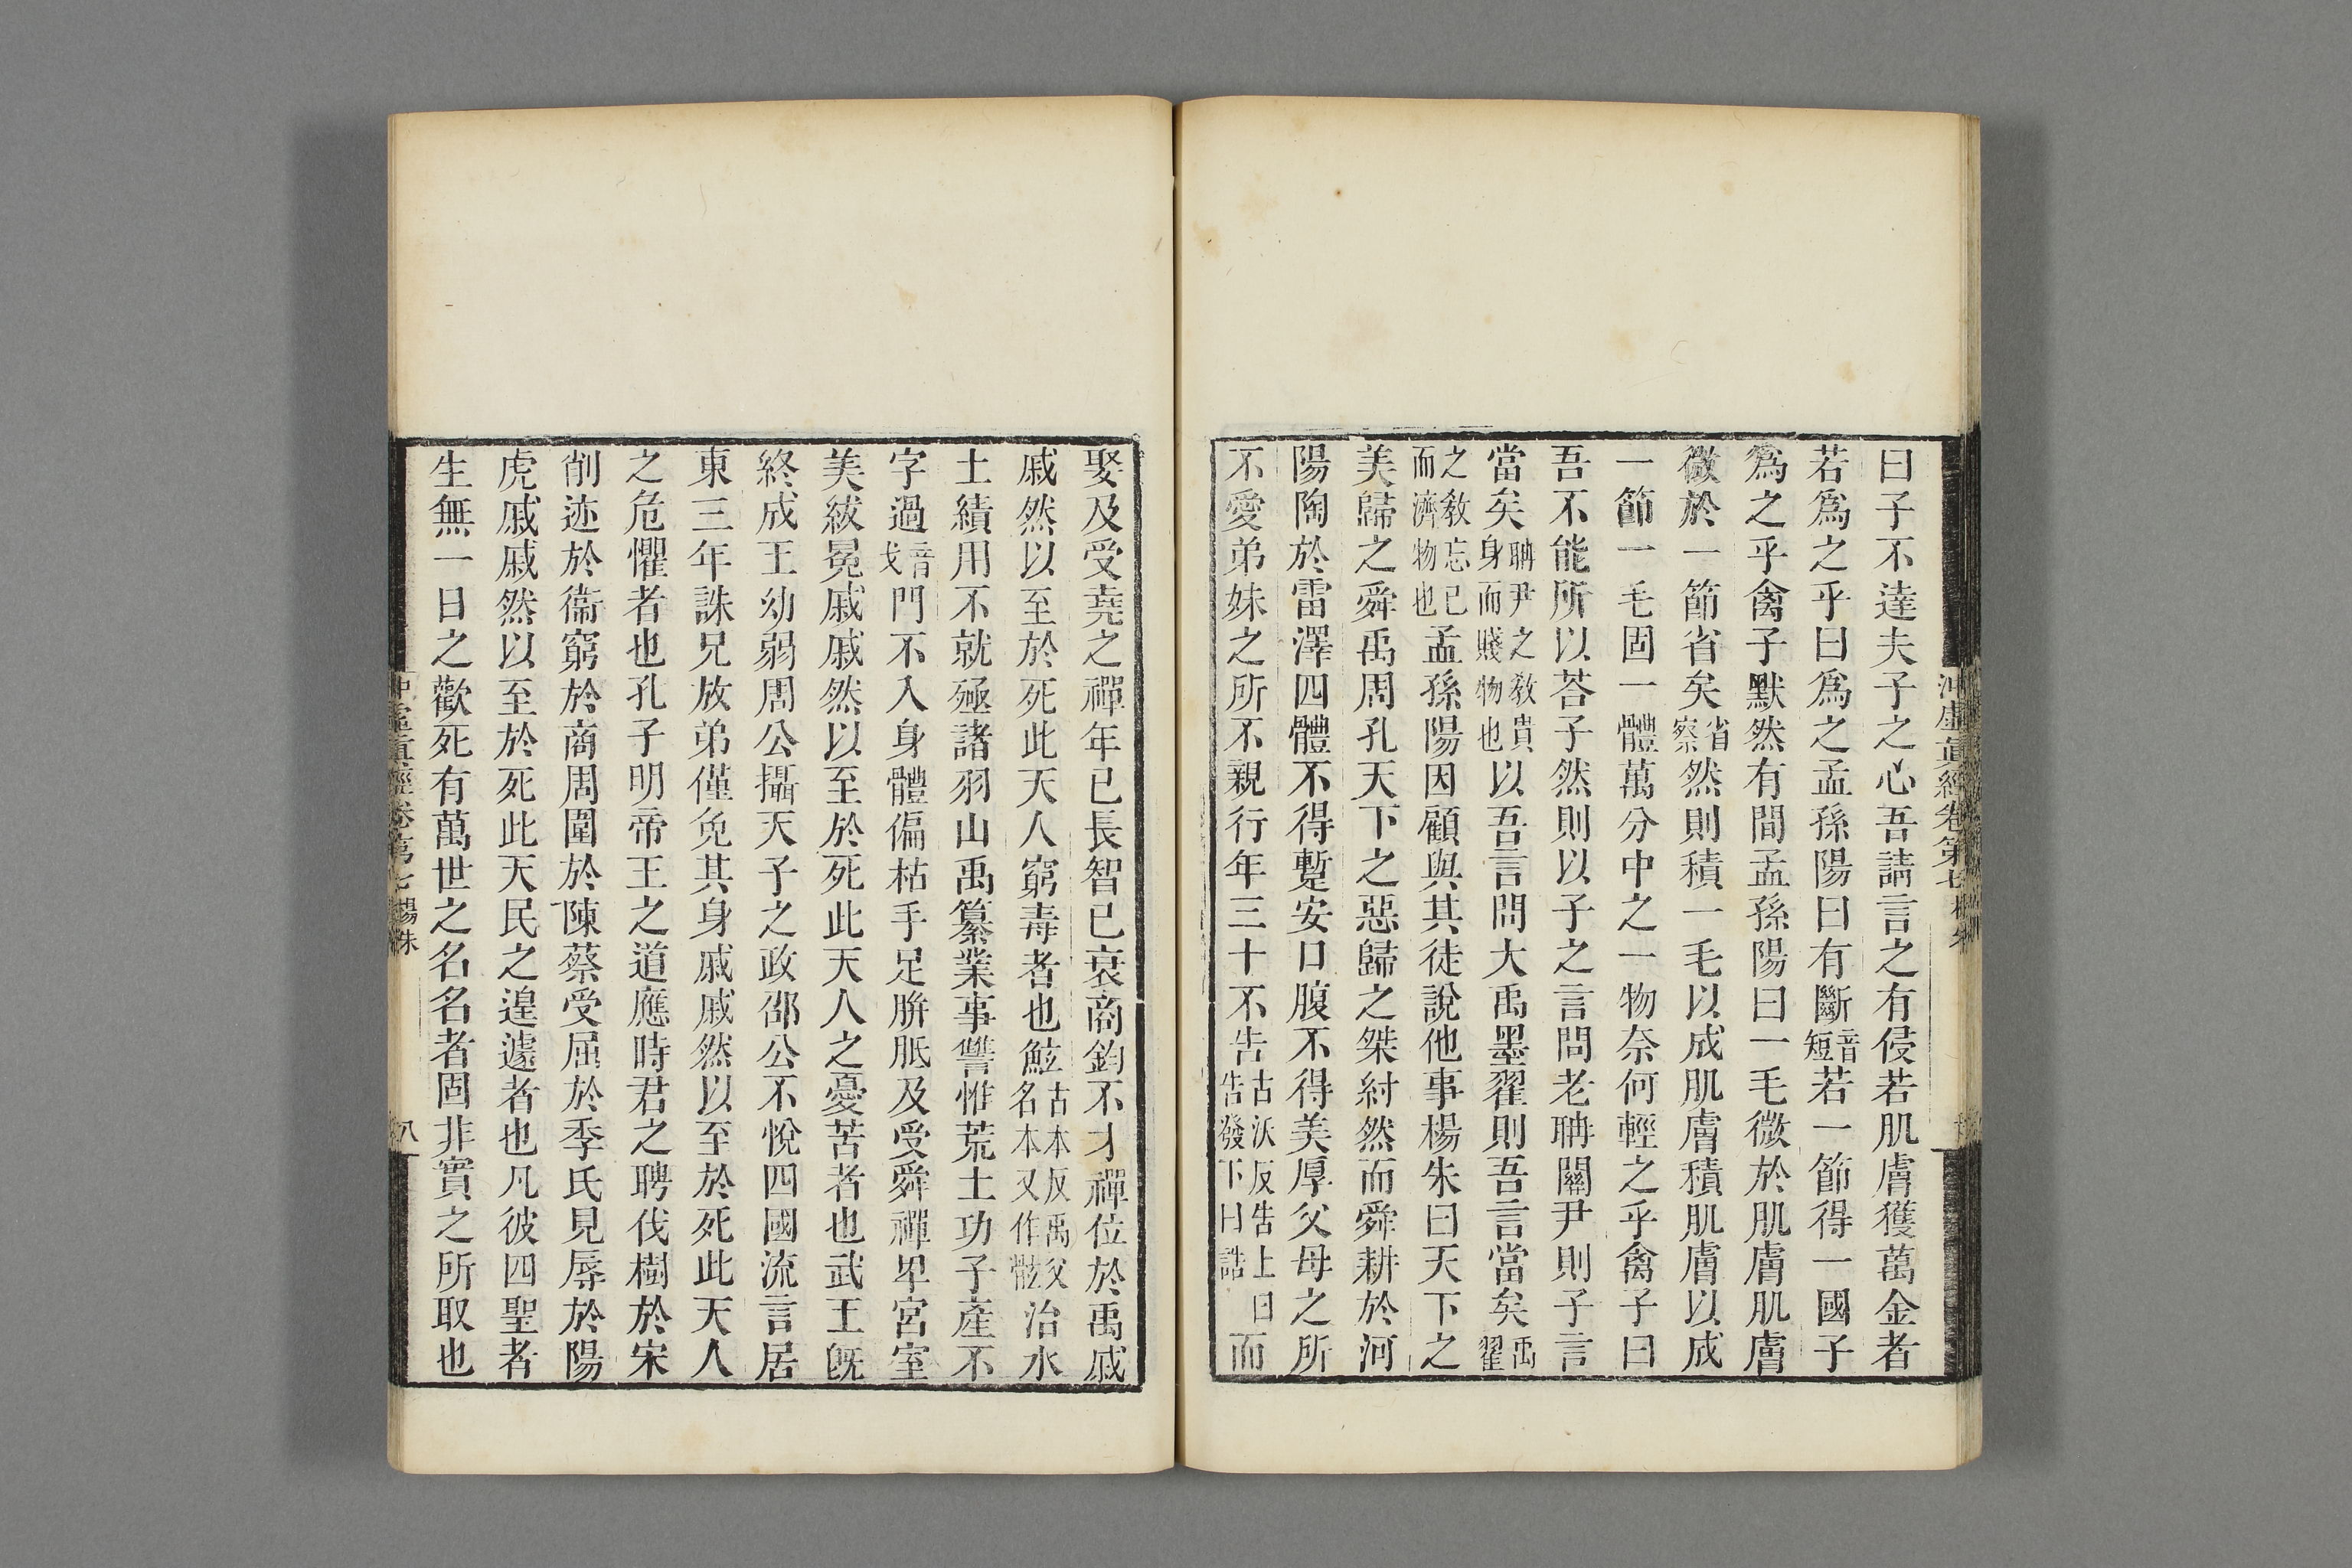 曰子不達夫子之心吾請言之有侵若肌膚獲萬金者
若爲之乎曰爲之孟孫陽曰有斷音短若一節得一國子
爲之乎禽子默然有間孟孫陽曰一毛微於肌膚肌膚
微於一節省矣省察然則積一毛以成肌膚積肌膚以成
一節一毛固一體萬分中之一物奈何輕之乎禽子曰
吾不能所以荅子然則以子之言問老聃關尹則子言
當矣聃尹之敎貴身而賤物也以吾言問大禹墨翟則吾言當矣禹翟
之敎忘己而濟物也孟孫陽因顧與其徒說他事楊朱曰天下之
美歸之舜禹周孔天下之惡歸之桀紂然而舜耕於河
陽陶於雷澤四體不得蹔安口腹不得美厚父母之所
不愛弟妹之所不親行年三十不告古沃反告上曰告發下曰誥而
娶及受堯之禪年已長智已衰商鈞不才禪位於禹戚
戚然以至於死此天人窮毒者也鮌古本反禹父名本又作骸治水
土績用不就殛諸羽山禹纂業事讐惟荒土功子產不
字過音戈門不入身體偏枯手足胼胝及受舜禪卑宮室
美紱冕戚戚然以至於死此天人之憂苦者也武王旣
終成王幼弱周公攝天子之政邵公不悅四國流言居
東三年誅兄放弟僅免其身戚戚然以至於死此天人
之危懼者也孔子明帝王之道應時君之聘伐樹於宋
削迹於衞窮於商周圍於陳蔡受屈於季氏見辱於陽
虎戚戚然以至於死此天民之遑遽者也凡彼四聖者
生無一日之歡死有萬世之名名者固非實之所取也
沖虛眞經卷第七 楊朱
八